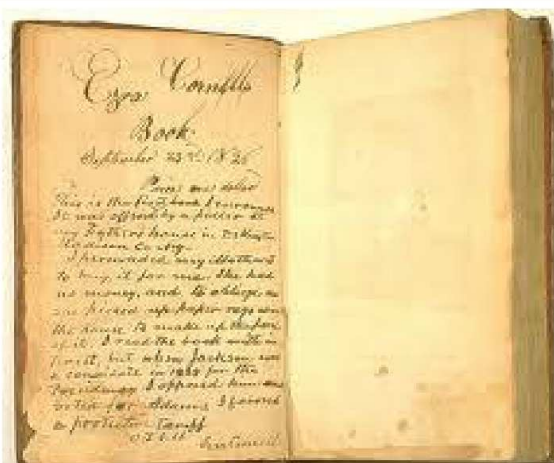 Ezra Cornell's
Book
September 23rd 1826
Price one dollar
This is the first book I
It was offered by a pedler at
my Father's house in
Madison County.
I persuaded my Mother
to buy it for me. She had
no money, and to oblige me
she picked up paper rags in
the house to make up the
of it. I read the book with
but when Jackson was
a candidate in for the
Presidency I opposed him and
voted for Adams. I favored
a protective Tariff